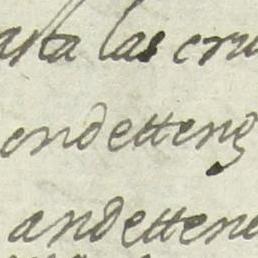 asta las cru
ondetteng
andettene